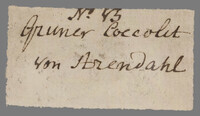 No. 83
Gruner Coccolit
von Arendahl